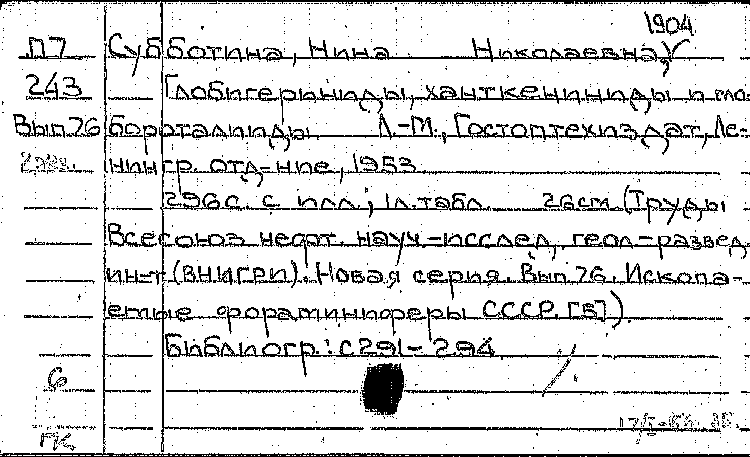 1904
П7 Субботина, Нина Николаевна,
243 Глобигериниды, ханткениниды и гло-
Вып.76 бороталииды. Л.-М., Гостоптехиздат, Ле-
нингр. отд-ние, 1953.
296с. с илл.; 1л.табл. 26см. (Труды
Всесоюз. нефт. науч.-исслед. геол-развед.
ин-т (ВНИГРИ). Новая серия. Вып.76. Ископа-
емые фораминиферы СССР. [В]).
Библиогр.: с291-294
6
ГК